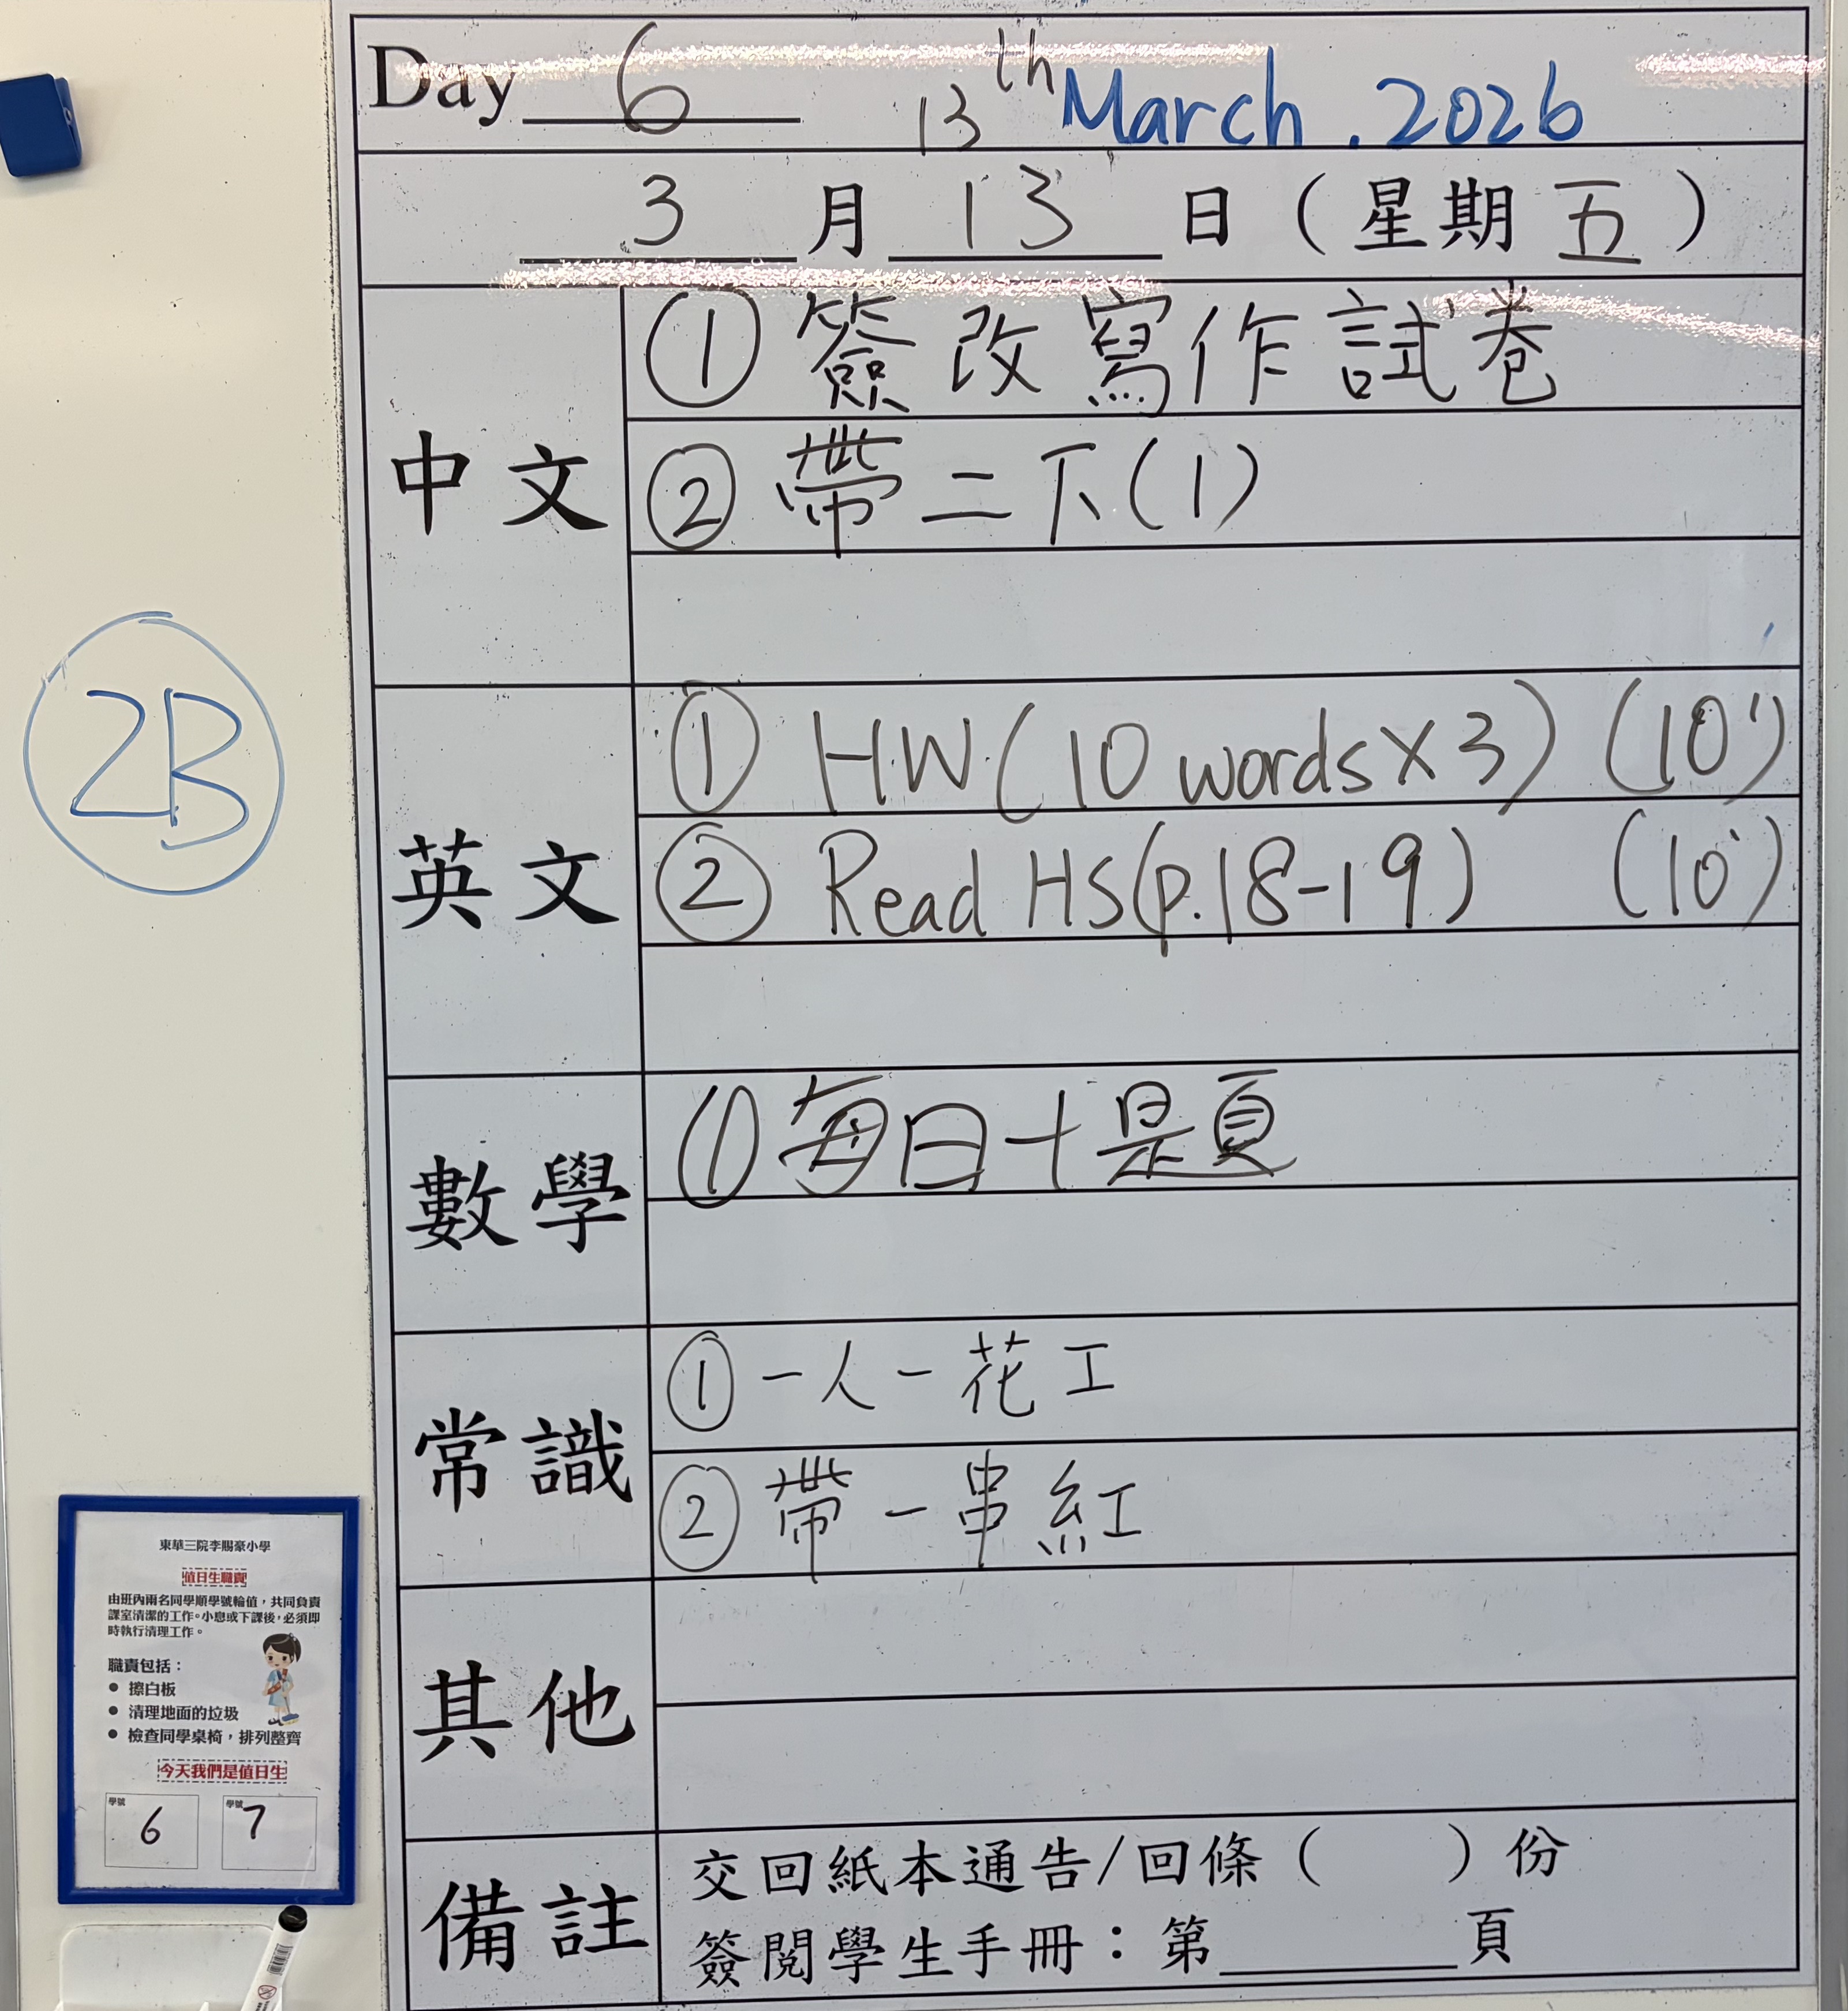 Day 6 13th March.2026
3 月 13 日（星期五）
中文
① 簽改寫作試卷
② 帶二下(1)
英文
① H.W.(10 words×3) (10')
② Read HS(p.18-19) (10')
數學
① 每日十題
常識
① 一人一花工
② 帶一串紅
其他
備註
交回紙本通告/回條（　　）份
簽閱學生手冊：第______頁
2B
東華三院李賜豪小學
值日生職責
由班內兩名同學順學號輪值，共同負責
課室清潔的工作。小息或下課後，必須即
時執行清理工作。
職責包括：
● 擦白板
● 清理地面的垃圾
● 檢查同學桌椅，排列整齊
今天我們是值日生
學號 6 學號 7